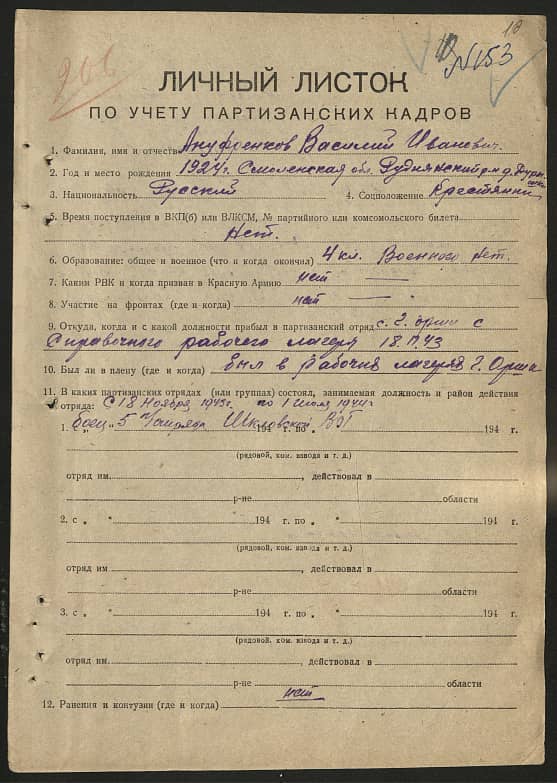 10
206
№153
ЛИЧНЫЙ ЛИСТОК
ПО УЧЕТУ ПАРТИЗАНСКИХ КАДРОВ
1. Фамилия, имя и отчество Ануфренков Василий Иванович.
2. Год и место рождения 1924г. Смоленская обл. Руднянский р-н д.
3. Национальность Русский 4. Соцположение Крестянин
5. Время поступления в ВКП(б) или ВЛКСМ, № партийного или комсомольского билета
Нет.
6. Образование: общее и военное (что и когда окончил) 4 кл. Военного Нет.
7. Каким РВК и когда призван в Красную Армию нет —
8. Участие на фронтах (где и когда) нет —
9. Откуда, когда и с какой должности прибыл в партизанский отряд с г. Орши с
рабочего лагеря 18.11.43
10. Был ли в плену (где и когда) был в рабочия лагерях г. Орша
11. В каких партизанских отрядах (или группах) состоял, занимаемая должность и район действия
отряда: С 18 Ноября 1943г. по 1 Июля 1944г
1. „боец" 5 п/отряда Шкловской ВОГ 194 г. по " 194 г.
(рядовой, ком. взвода и т. д.)
отряд им. , действовал в
р-не области
2. с „ " 194 г. по „ " 194 г.
(рядовой, ком. взвода и т. д.)
отряд им. , действовал в
р-не области
3. с „ " 194 г. по „ " 194 г.
(рядовой, ком. взвода и т. д.)
отряд им. , действовал в
р-не области
12. Ранения и контузии (где и когда) нет